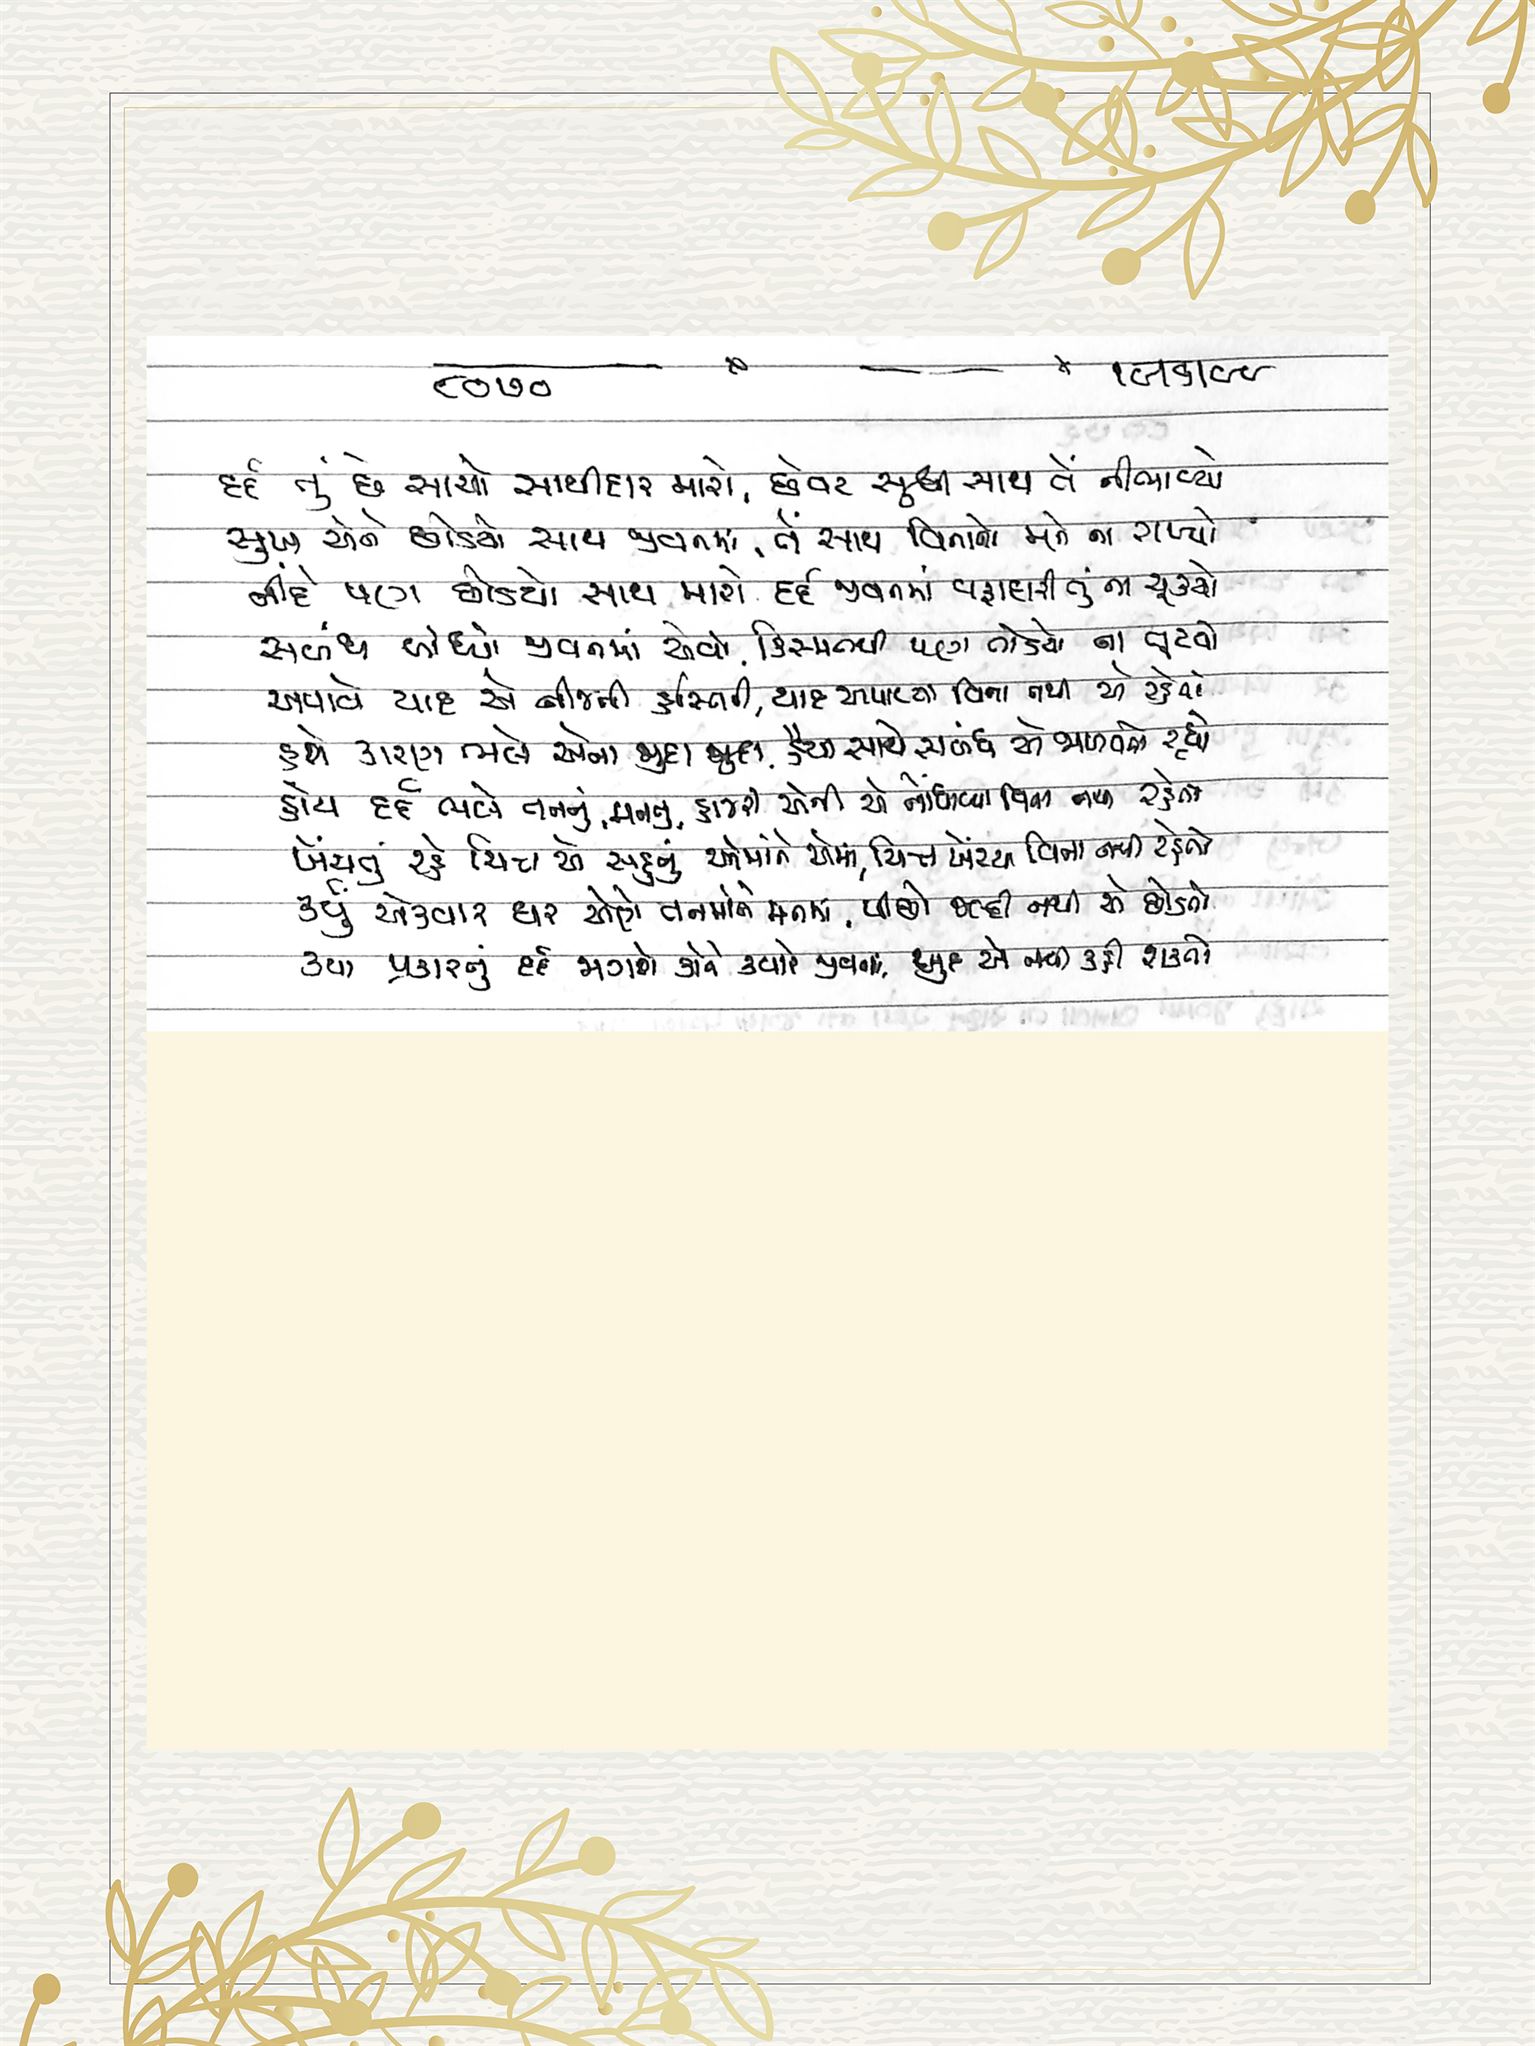 ૯૦૭૦
દર્દ તું છે સાચો સાથીદાર મારો, છેવટ સુધી સાથ તેં નીભાવ્યો
સુખ એને છોડયો સાથ જીવનમાં, તેં સાથ વિનાનો મને ના રાખ્યો
નીંદે પણ છોડયો સાથ મારો દર્દ જીવનમાં વફાદારી તું ના ચૂકયો
સબંધ બાંધ્યો જીવનમાં એવો, કિસ્મતથી પણ તોડયો ના તૂટયો
અપાવે યાદ એ નીજની હસ્તિની, યાદ અપાવ્યા વિના નથી એ રહેતો
હશે કારણ ભલે એના જુદા જુદા, હૈયા સાથે સબંધ એ જાળવતો રહ્યો
હોય દર્દ ભલે તનનું, મનનું, હાજરી એની એ નોંધાવ્યા વિના નથી રહેતો
ખેંચતું રહે ચિત્ત એ સહુનું એમાંને એમાં, ચિત્ત ખેંચ્યા વિના નથી રહેતો
કર્યું એકવાર ઘર એણે તનમાંને મનમાં, પીછો જલ્દી નથી એ છોડતો
કયા પ્રકારનું દર્દ જાગશે કોને કયારે જીવનમાં, ખુદ એ નથી કહી શકતો